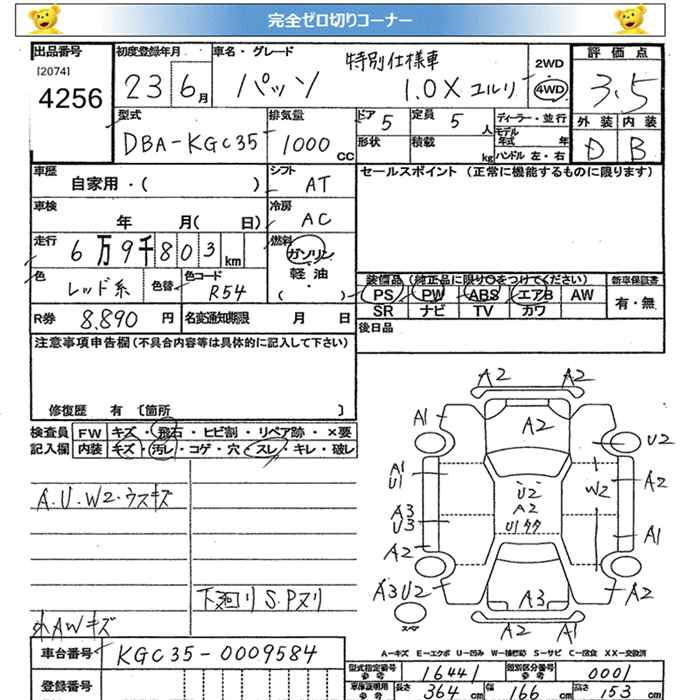 完全ゼロ切りコーナー
出品番号 初度登録年月 車名・グレード 評価点
[2074] 特別仕様車 2WD
4256 23 6月 パッソ 1.0X ユルリ 4WD 3.5
型式 排気量 ドア 5 定員 5人 ディーラー・並行 外装 内装
DBA-KGC35 1000 CC 形状 積載 kg モデル年式 年 D B
ハンドル 左・右
車歴 シフト セールスポイント (正常に機能するものに限ります)
自家用・( ) AT
車検 冷房
年 月( 日) AC
走行 燃料
6万9千803km ガソリン
色 レッド系 色替 色コード R54 軽油
( )
装備品 (純正品に限り○をつけてください) 新車保証書
PS PW ABS エアB AW 有・無
SR ナビ TV カワ
R券 8.890円 名変通知期限 月 日 後日品
注意事項申告欄(不具合内容等は具体的に記入して下さい)
修復歴 有 〔箇所 〕
検査員 FW キズ・飛石・ヒビ割・リペア跡・×要
記入欄 内装 キズ・汚レ・コゲ・穴・スレ・キレ・破レ
A.U.W2.ウスキズ
下廻リ S.Pヌリ
AWキズ
A2 A2
A1 A2 U2
A1 U1 U2 W2 A2
A3 U3 A2 A1
A2 U1
A3U2 A3 A2
A2 A1
A-キズ E-エクボ U-凹み W-補修跡 S-サビ C-腐食 XX-交換済
車台番号 KGC35-0009584
型式指定番号 参考 16441 類別区分番号 参考 0001
登録番号 車庫証明用 参考 長さ 364 cm 幅 166 cm 高さ 153 cm